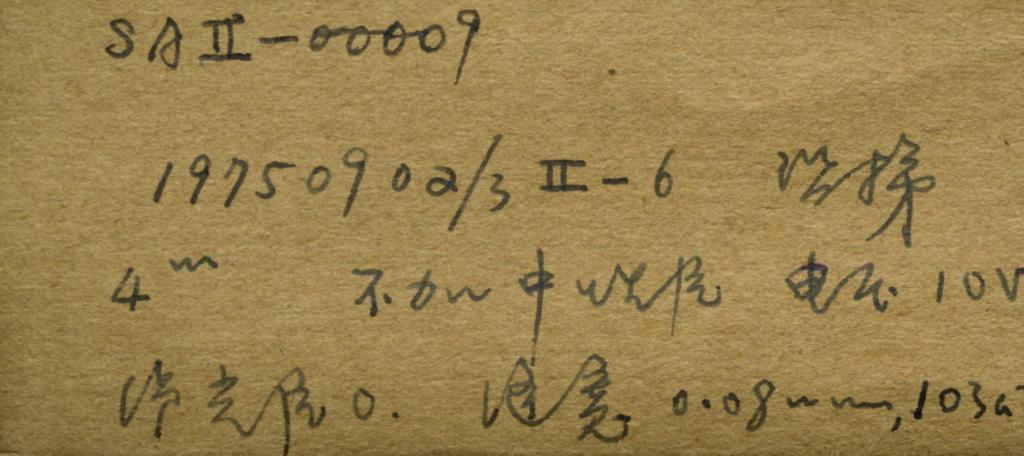 SA II-00009
19750902/3 II-6
4m 不加中性片 电压 10V
滞光片 0. 缝宽 0.08mm, 103a